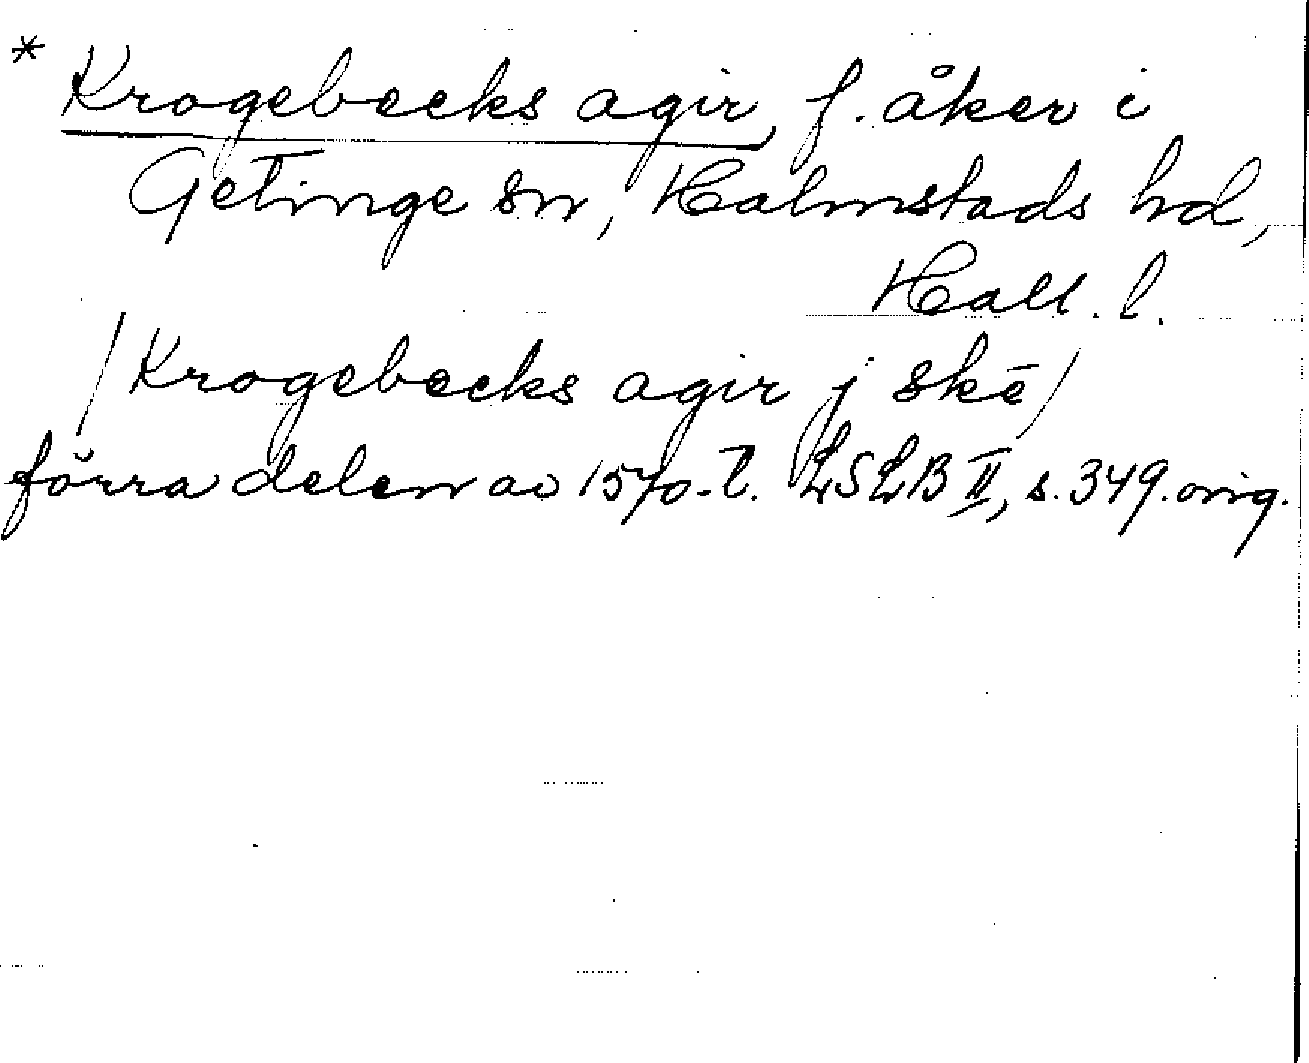 * Krogebecks agir, f. åker i
Getinge sn, Halmstads hd,
Hall. l.
/Krogebecks agir j skē/
förra delen av 1570-t. LSLB II, s. 349. orig.